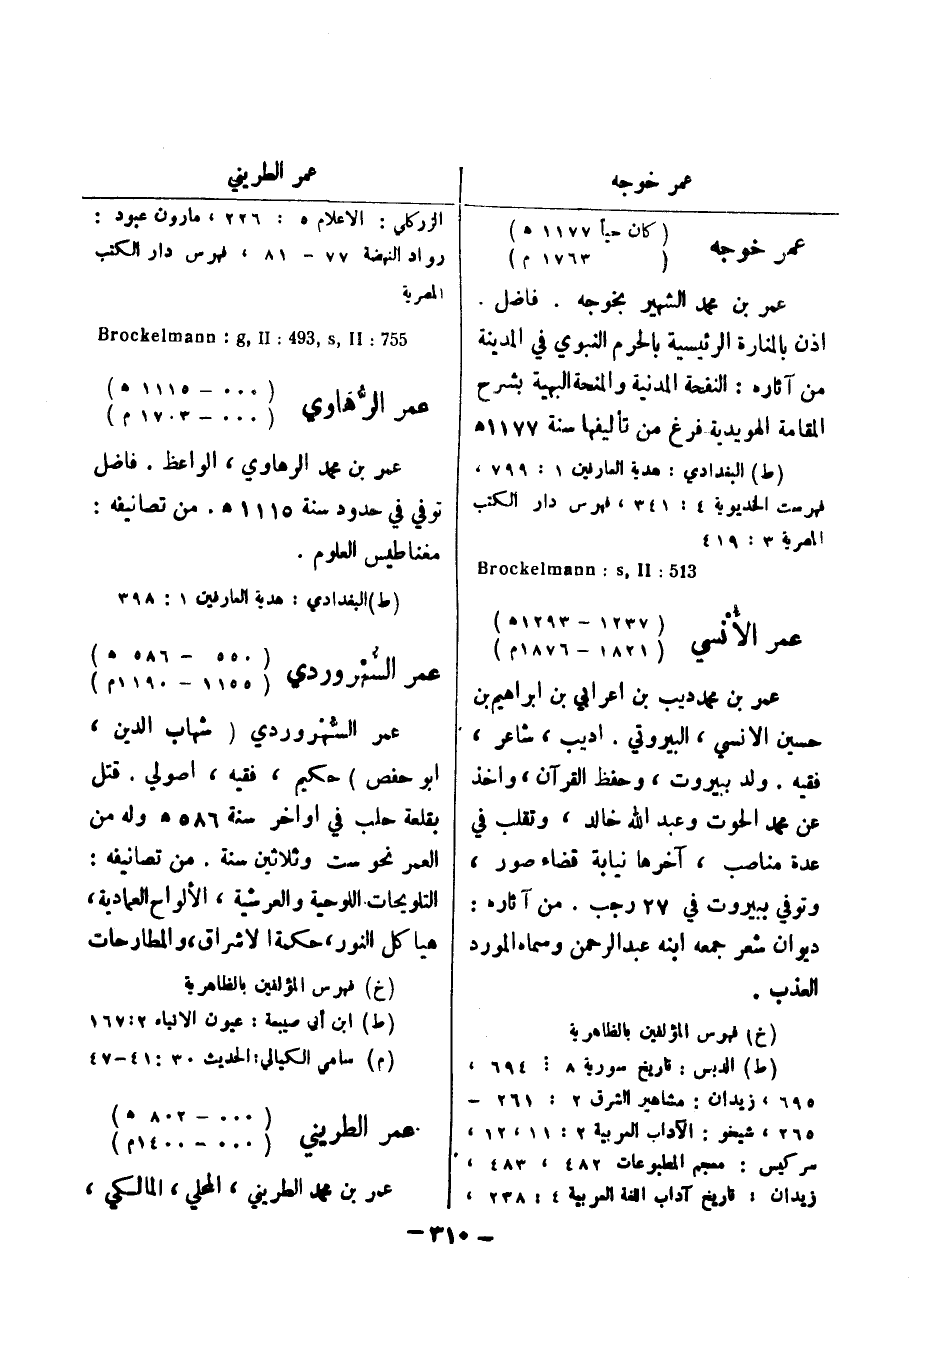 عمر خوجه
عمر خوجه
( كان حياً ١١٧٧ ه )
( ١٧٦٣ م )
عمر بن محمد الشهير بخوجه . فاضل .
اذن بالمنارة الرئيسية بالحرم النبوي في المدينة
من آثاره : النفحة المدنية والمنحة البهية بشرح
المقامة الهويدية فرغ من تأليفها سنة ١١٧٧ه
(ط) البغدادي : هدية العارفين ١ : ٧٩٩ ،
فهرست الخديوية ٤ : ٣٤١ ، فهرس دار الكتب
المصرية ٣ : ٤١٩
Brockelmann : s, II : 513
عمر الأُنْسي
( ١٢٣٧ – ١٢٩٣ه )
( ١٨٢١ – ١٨٧٦م )
عمر بن محمد ديب بن اعرابي بن ابراهيم بن
حسين الانسي ، البيروتي . اديب ، شاعر ،
فقيه . ولد ببيروت ، وحفظ القرآن ، واخذ
عن محمد الحوت وعبد الله خالد ، وتقلب في
عدة مناصب ، آخرها نيابة قضاء صور ،
وتوفي ببيروت في ٢٧ رجب . من آثاره :
ديوان شعر جمعه ابنه عبدالرحمن وسماه المورد
العذب .
(خ) فهرس المؤلفين بالظاهرية
(ط) الدبس : تاريخ سورية ٨ : ٦٩٤ ،
٦٩٥ ، زيدان : مشاهير الشرق ٢ : ٢٦١ –
٢٦٥ ، شيخو : الآداب العربية ٢ : ١١ ، ١٢ ،
سركيس : معجم المطبوعات ٤٨٢ ، ٤٨٣ ،
زيدان : تاريخ آداب اللغة العربية ٤ : ٢٣٨ ،
عمر الطريني
الزركلي : الاعلام ٥ : ٢٢٦ ، مارون عبود :
رواد النهضة ٧٧ – ٨١ ، فهرس دار الكتب
المصرية
Brockelmann : g, II : 493, s, II : 755
عمر الرُّهاوي
( ٠٠٠ – ١١١٥ ه )
( ٠٠٠ – ١٧٠٣ م )
عمر بن محمد الرهاوي ، الواعظ . فاضل
توفي في حدود سنة ١١١٥ ه . من تصانيفه :
مغناطيس العلوم .
(ط) البغدادي : هدية العارفين ١ : ٣٩٨
عمر السُّهْروردي
( ٥٥٠ – ٥٨٦ ه )
( ١١٥٥ – ١١٩٠م )
عمر السُّهْروردي ( شهاب الدين ،
ابو حفص ) حكيم ، فقيه ، اصولي . قتل
بقلعة حلب في اواخر سنة ٥٨٦ ه وله من
العمر نحو ست وثلاثين سنة . من تصانيفه :
التلويحات اللوحية والعرشية ، الألواح العمادية ،
هيا كل النور ، حكمة الاشراق ، والمطارحات
(خ) فهرس المؤلفين بالظاهرية
(ط) ابن أبي صيبعة : عيون الانباء ٢ : ١٦٧
(م) سامي الكيالي : الحديث ٣٠ : ٤١ – ٤٧
عمر الطريني
( ٠٠٠ – ٨٠٢ ه )
( ٠٠٠ – ١٤٠٠م )
عمر بن محمد الطريني ، المحلي ، المالكي ،
– ٣١٠ –